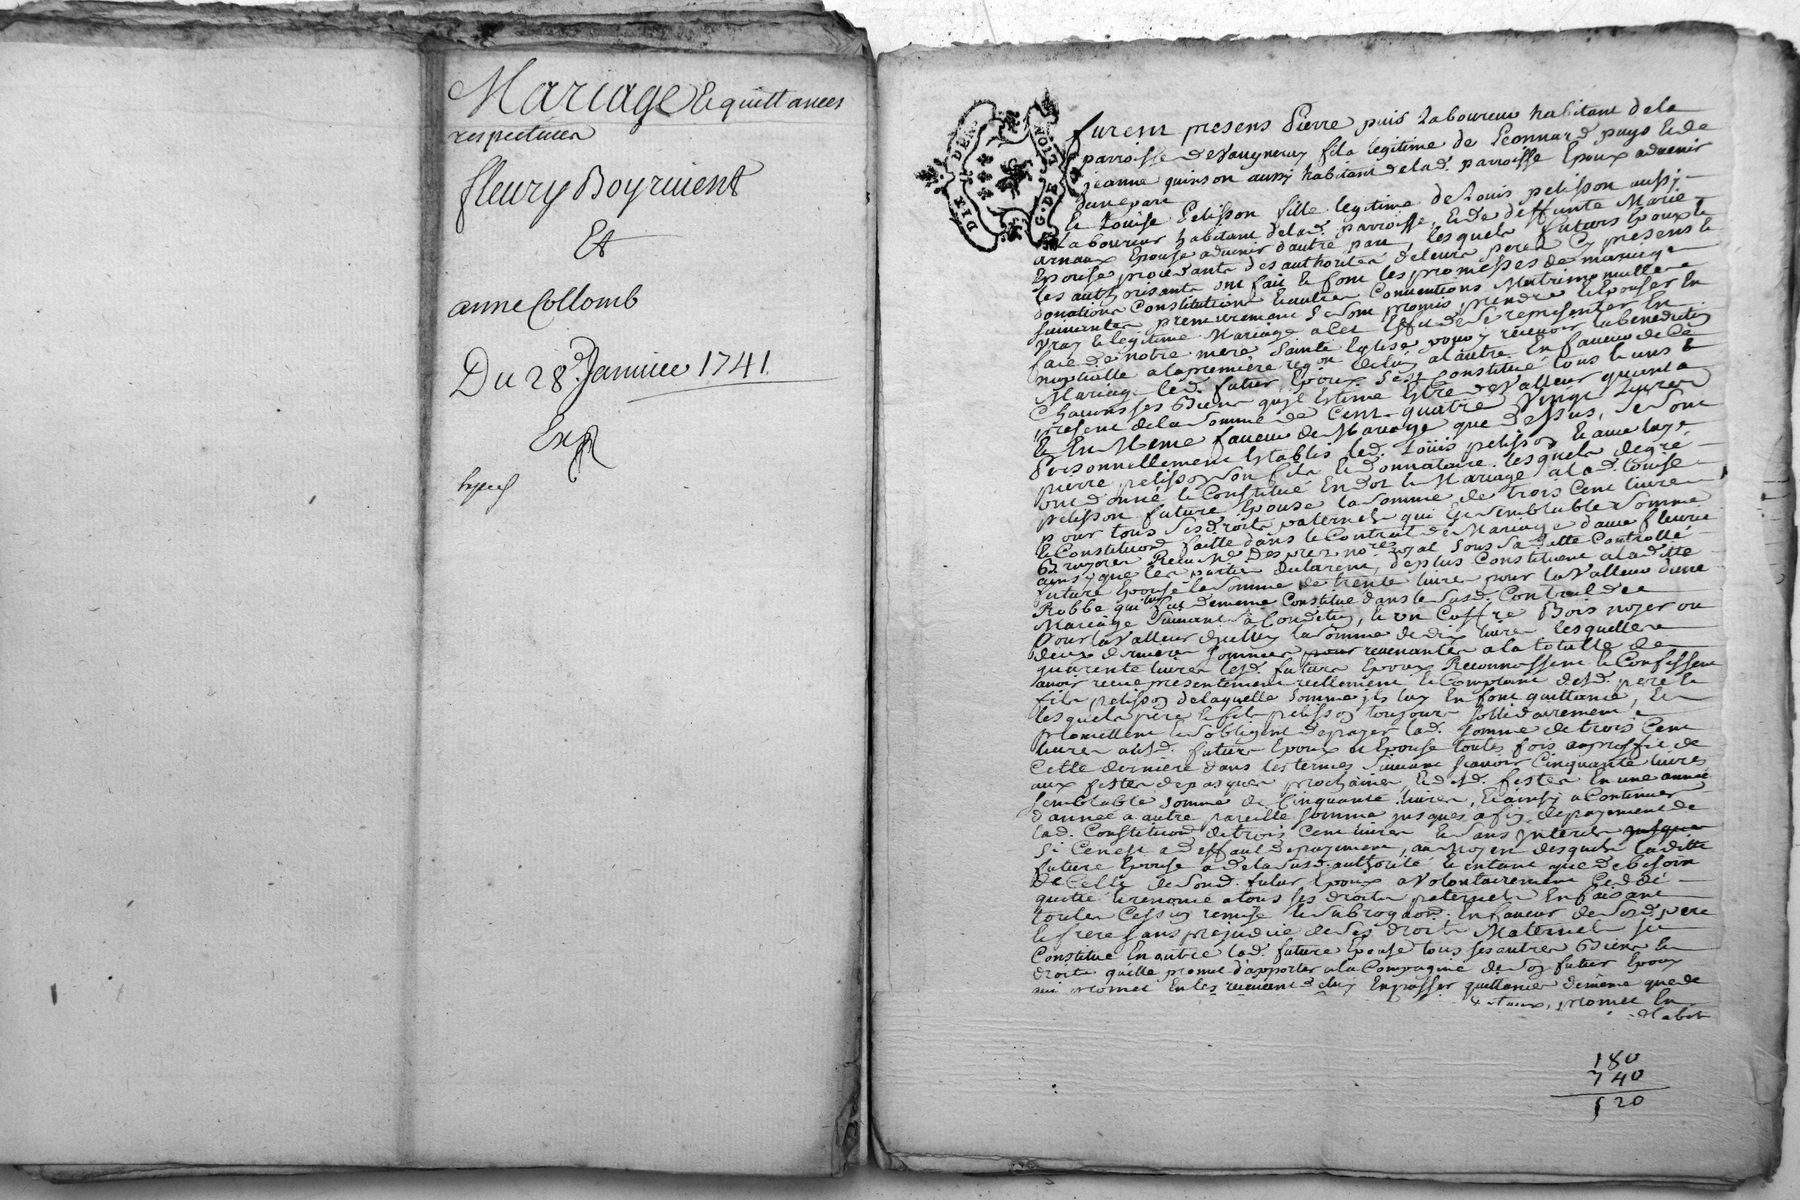 Mariage Et quittances
respectives
fleury Boyrivent
Et
anne Collomb
Du 28e Janvier 1741
Exp
DIX DEN.
G. DE LION
furent presens Pierre puis Laboureur habitant de la
parroisse de Vaugneray fils legitime de Leonnard puys Et de
jeanne quinson aussy habitant de lad. parroisse Epoux advenir
dune part
Et Louise Pelisson fille legitime de Louis pelisson aussi
Laboureur habitant de lad. parroisse, Et de deffunte Marie
arnaux Epouse advenir d'autre part, lesquels futurs Epoux &
Epouse procedants des authorités de leurs peres Cy presents &
les authorisants ont fait & font les promesses de mariage
donations Constitutions Et autres Conventions Matrimonialles
suivantes premierement Se sont promis prendre & Epouser En
vray & legitime Mariage a Cet Effet de Se representer En
face de notre mere Sainte Eglise pour y recevoir la benediction
nuptialle a la premiere reqon de lun a lautre. En faveur de Ce
Mariage led. futur Epoux s'est Constitué tous & uns &
Chacuns ses Biens quil Estime Estre de Valleur quant a
present de la Somme de Cent quatre Vingt Livres
& En Meme faveur de Mariage que dessus, Se Sont
Personnellement Establis led. Loüis pelisson & avec luy
pierre pelisson son fils & donnataire lesquels de gré
ont donné & Constitué En dot & Mariage a lad. Louise
pelisson future Epouse la somme de trois Cent livres
pour tous Ses droits paternels qui Est Semblable Somme
& Constitution faitte dans le Contrat de Mariage davec fleurie
Recu Me Desprez nore royal Sous Sa dette Controllé
ainsy que les parties declarent, de plus Constituent a la ditte
future Epouse la Somme de trente livres pour la Valleur d'une
Robbe qui luy fut de meme Constitué dans le Susd. Contrat de
Mariage Suivant Sa Condition, & un Coffre Bois noyer ou
Pour la Valleur d'yceluy la Somme de dix livres lesquelles
deux dernieres Sommes revenantes a la totalle de
quarente livres lesd. futurs Epoux Reconnoissent & Confessent
avoir receu presentement reellement & Comptant desd. pere &
fils pelisson de laquelle Somme ils luy En font quittance, Et
lesquels pere & fils pelisson toujours sollidairement
Promettent & s'obligent de payer lad. Somme de trois Cent
livres ausd. futurs Epoux & Epouse toutes fois au proffit de
Cette derniere dans les termes Suivant Scavoir Cinquante livres
aux festes de pasques prochaines, & desd. festes En une année
semblable Somme de Cinquante livres, & ainsy a Continuer
d'année a autre pareille Somme jusques a fin de payement de
lad. Constitution de trois Cent livres & Sans Interets jusques
Si Ce n'est a deffaut de payement, au Moyen desquels Laditte
future Epouse de la Susd. authorité & entant que de besoin
De Celle de Sond. futur Epoux a Volontairement Ceddé
quitté & renoncé a tous Ses droits paternels En faisant
toutes Cession remise & Subrogaon. En faveur de Sond. pere
& frere Sans prejudice de Ses droits Maternels Se
Constitue En outre lad. future Epouse tous Ses autres Biens &
droits quelle promet d'apporter a la Compagnie de Son futur Epoux
qui promet En les recevant d'eluy En passer quittance de meme que de
promet En
180
740
520